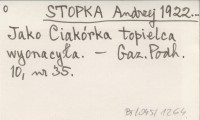 o STOPKA Andrzej 1922...
Jako Ciakórka topielca
wyonacyła. — Gaz. Podh.
10, nr 35.